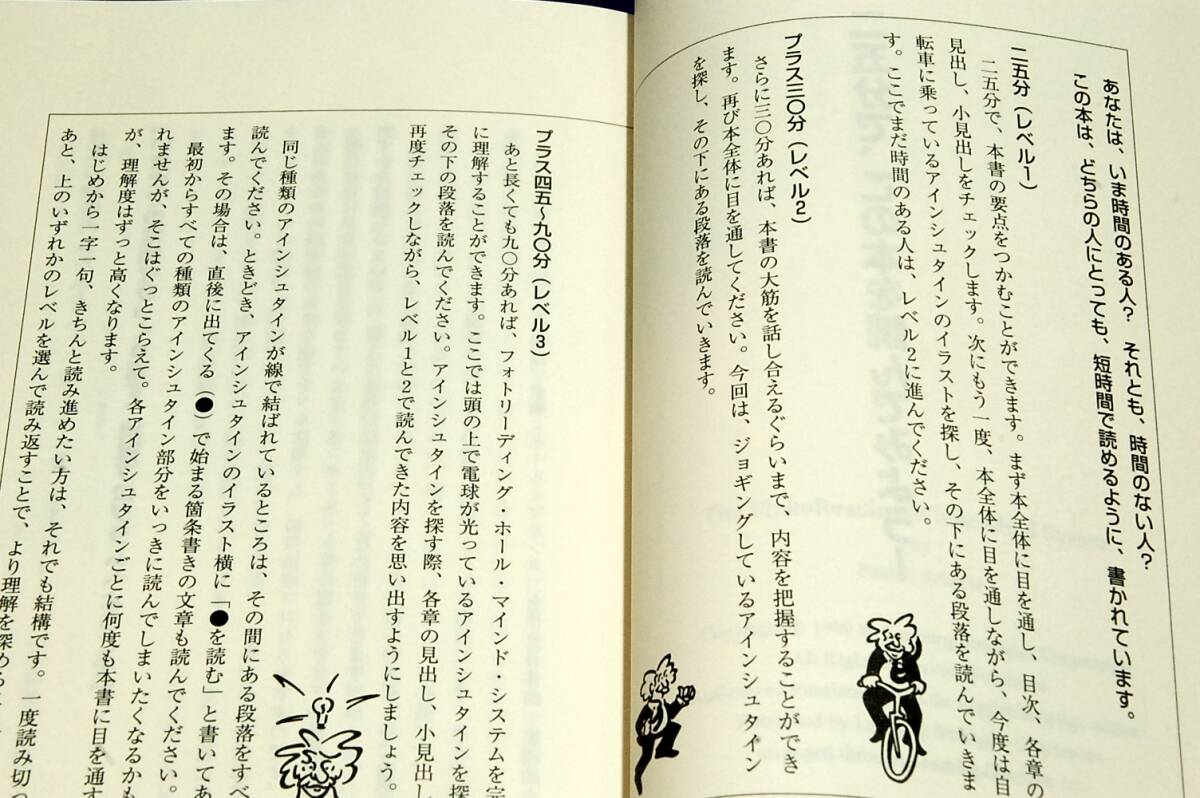 あなたは、いま時間のある人？　それとも、時間のない人？
この本は、どちらの人にとっても、短時間で読めるように、書かれています。
二五分（レベル1）
二五分で、本書の要点をつかむことができます。まず本全体に目を通し、目次、各章の
見出し、小見出しをチェックします。次にもう一度、本全体に目を通しながら、今度は自
転車に乗っているアインシュタインのイラストを探し、その下にある段落を読んでいきま
す。ここでまだ時間のある人は、レベル2に進んでください。
プラス三〇分（レベル2）
さらに三〇分あれば、本書の大筋を話し合えるぐらいまで、内容を把握することができ
ます。再び本全体に目を通してください。今回は、ジョギングしているアインシュタイン
を探し、その下にある段落を読んでいきます。
プラス四五〜九〇分（レベル3）
あと長くても九〇分あれば、フォトリーディング・ホール・マインド・システムを完
に理解することができます。ここでは頭の上で電球が光っているアインシュタインを探
その下の段落を読んでください。アインシュタインを探す際、各章の見出し、小見出し
再度チェックしながら、レベル1と2で読んできた内容を思い出すようにしましょう。
同じ種類のアインシュタインが線で結ばれているところは、その間にある段落をすべ
読んでください。ときどき、アインシュタインのイラスト横に「●を読む」と書いてあ
ます。その場合は、直後に出てくる（●）で始まる箇条書きの文章も読んでください。
最初からすべての種類のアインシュタイン部分をいっきに読んでしまいたくなるかも
れませんが、そこはぐっとこらえて。各アインシュタインごとに何度も本書に目を通す
が、理解度はずっと高くなります。
はじめから一字一句、きちんと読み進めたい方は、それでも結構です。一度読み切っ
あと、上のいずれかのレベルを選んで読み返すことで、より理解を深める